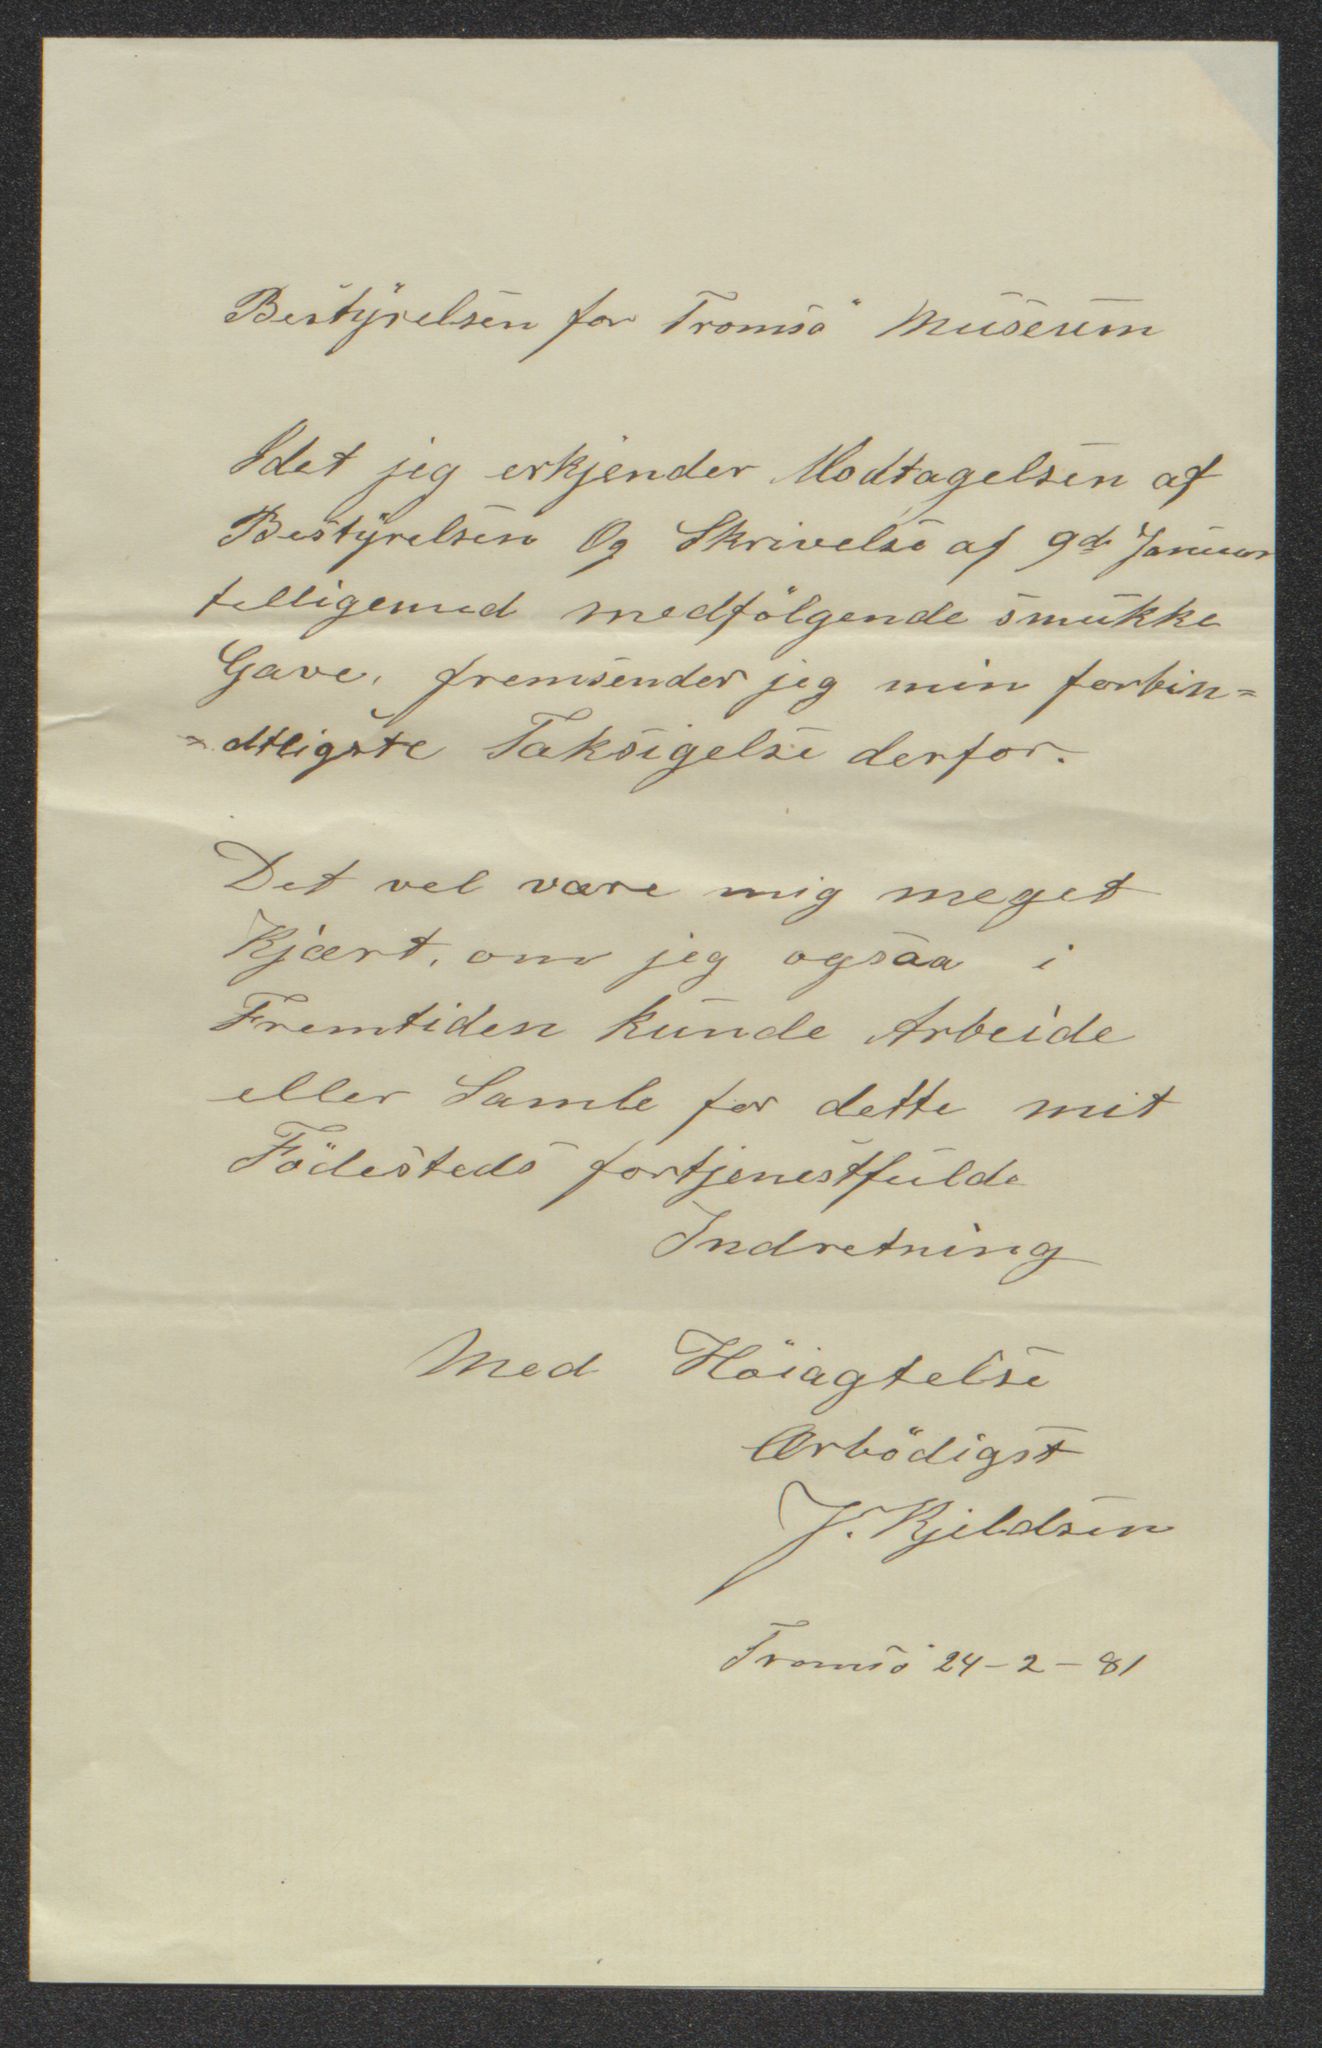 Bestyrelsen for Tromsö Museum
Idet jeg erkjender Modtagelsen af
Bestyrelsen Og Skrivelse af 9de Januar
telligemed medfölgende smukke
Gave, fremsender jeg min forbin=
=dtligste Taksigelse derfor.
Det vel være mig meget
Kjært, om jeg ogsaa i
Fremtiden kunde Arbeide
eller Samle for dette mit
Födesteds fortjenestfulde
Indretning
Med Höiagtelse
Ærbödigst
J. Kjeldsen
Tromsö 24-2-81